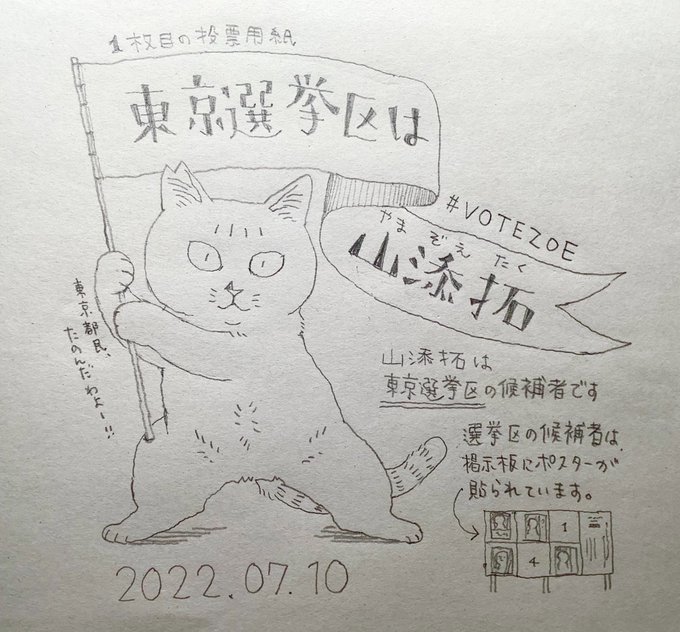 1枚目の投票用紙
東京選挙区は
#VOTEZOE
やま ぞえ たく
山添拓
東京都民、
たのんだわよー!!
山添拓は
東京選挙区の候補者です
選挙区の候補者は、
掲示板にポスターが
貼られています。
1
4
2022.07.10